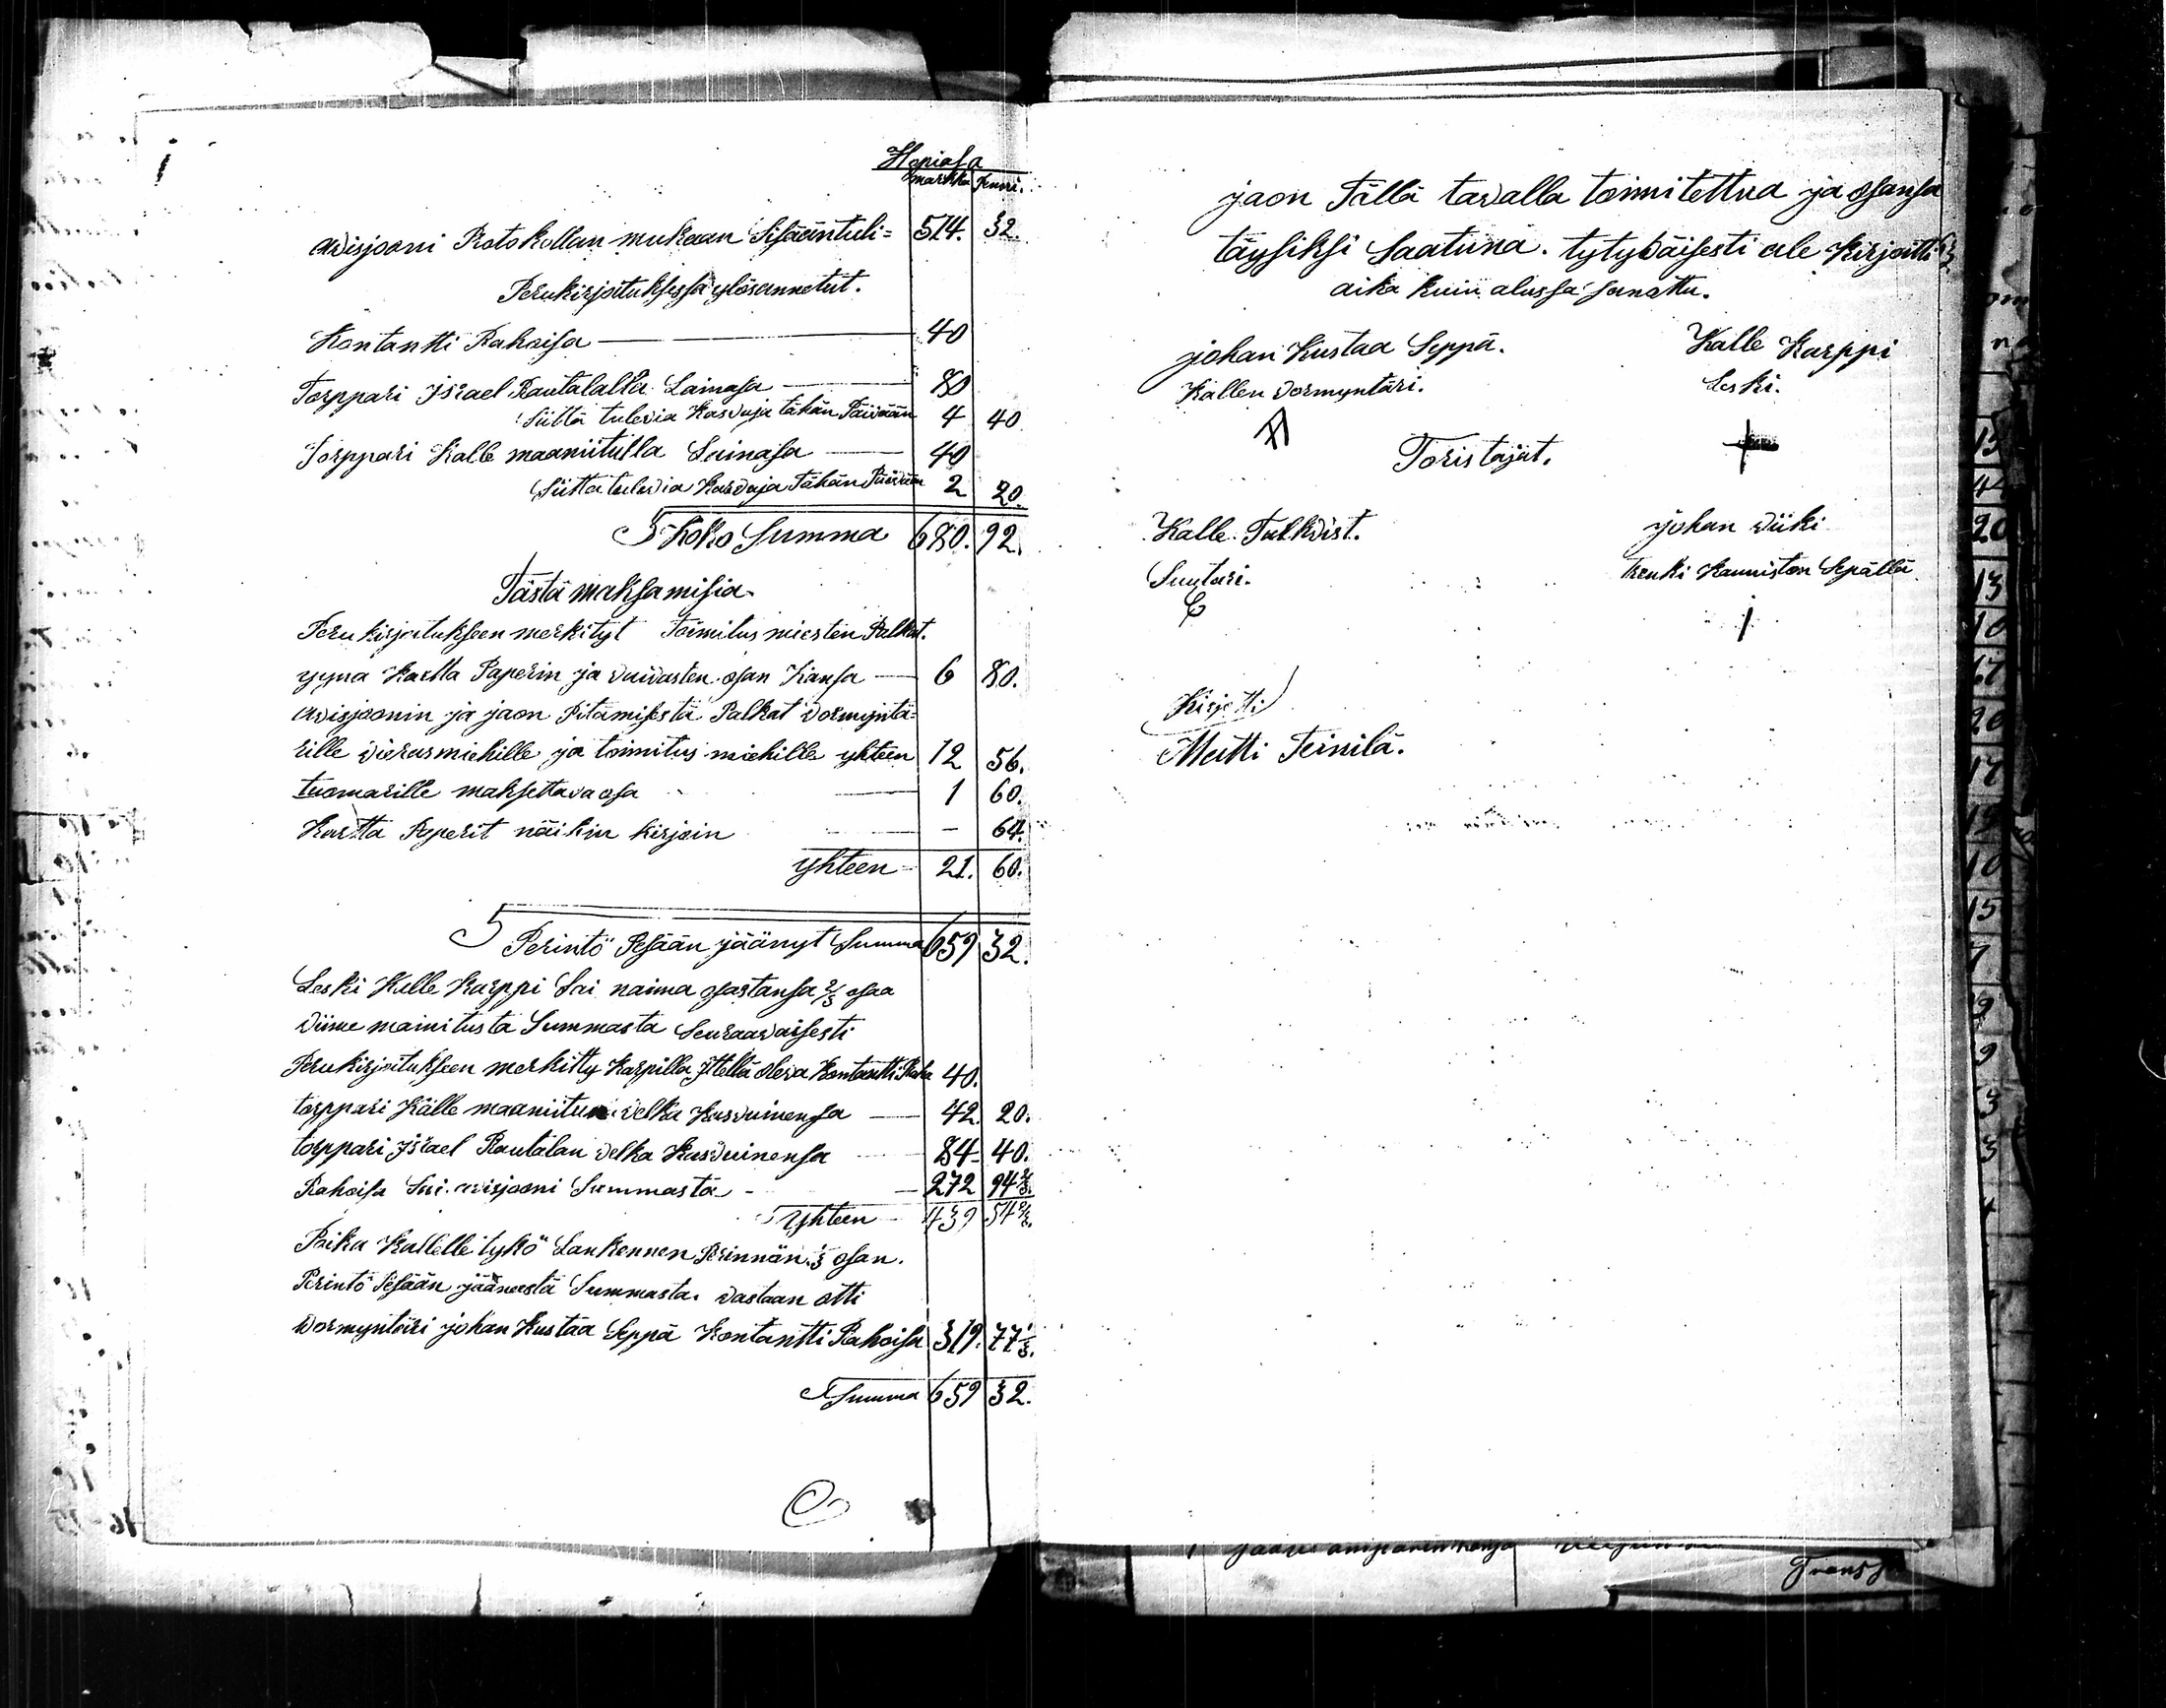 Hopiasa
markka penni.
avisjooni Protokollan mukaan Sisääntuli= 514. 32.
Perukirjoituksessa ylösannetut.
Kontantti Rahaisa — 40
Torppari Jsrael Rautalalla Lainasa — 80
Siittä tulevia Kasvuja tähän Päivään 4 40
Torppari Kalle maaniitulla Lainasa — 40
Siitta tulevia Kasvuja Tähän Päivään 2 20.
Koko Summa 680. 92.
Tästä maksamisia.
Perukirjoitukseen merkityt Toimitus miesten Palkat.
ynna Kartta Paperin ja vaivasten osan Kansa — 6 80.
avisjoonin ja jaon Pitämisestä Palkat vormyntä=
rille vierasmiehille ja toimitus miehille yhteen 12 56.
tuomarille maksettava osa — 1 60.
Kartta Paperit näihin kirjoin — — 64.
yhteen 21. 60.
Perintö Pesään jäänyt Summa 659 32.
Leski Kalle Karppi Sai naima osastansa 2/3 osaa
viime mainitusta Summasta Seuraavaisesti
Perukirjoitukseen merkitty Karpilla Jtellä oleva Kontantti Raha 40.
torppari Kalle maaniitun velka Kasvuinensa — 42. 20.
torppari Jsrael Rautalan velka Kasvuinensa 84. 40.
Rahoisa Sai avisjooni Summasta — 272 94 2/3.
Yhteen 439 54 2/3.
Poika Kallelle tykö Lankennen Perinnän 1/3 osan.
Perintö Pesään jääneestä Summasta. vastaan otti
vormyntäri johan Kustaa Seppä Kontantti Rahoisa 219. 77 1/3.
Summa 659 32.
jaon Tällä tavalla toimitettua ja osansa
täysiksi Saatuna. tytyväisesti ale Kirjoitti
aika kuin alussa sanottu.
johan Kustaa Seppä. Kalle Karppi
Kallen vormyntäri. Leski.
Toristajat.
Kalle Tulkvist. johan wiiki
Suutari. trenki Kanniston Sepällä
Kirjotti
Matti Teinilä.